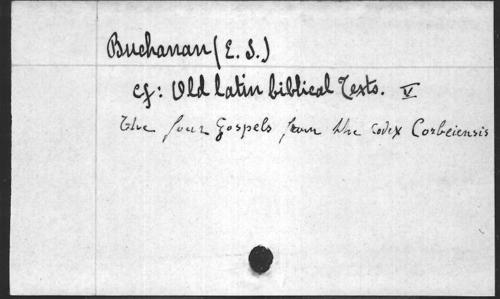 Buchanan (E. S.)
cf: Old latin biblical Texts. V
The four Gospels from the codex Corbeiensis